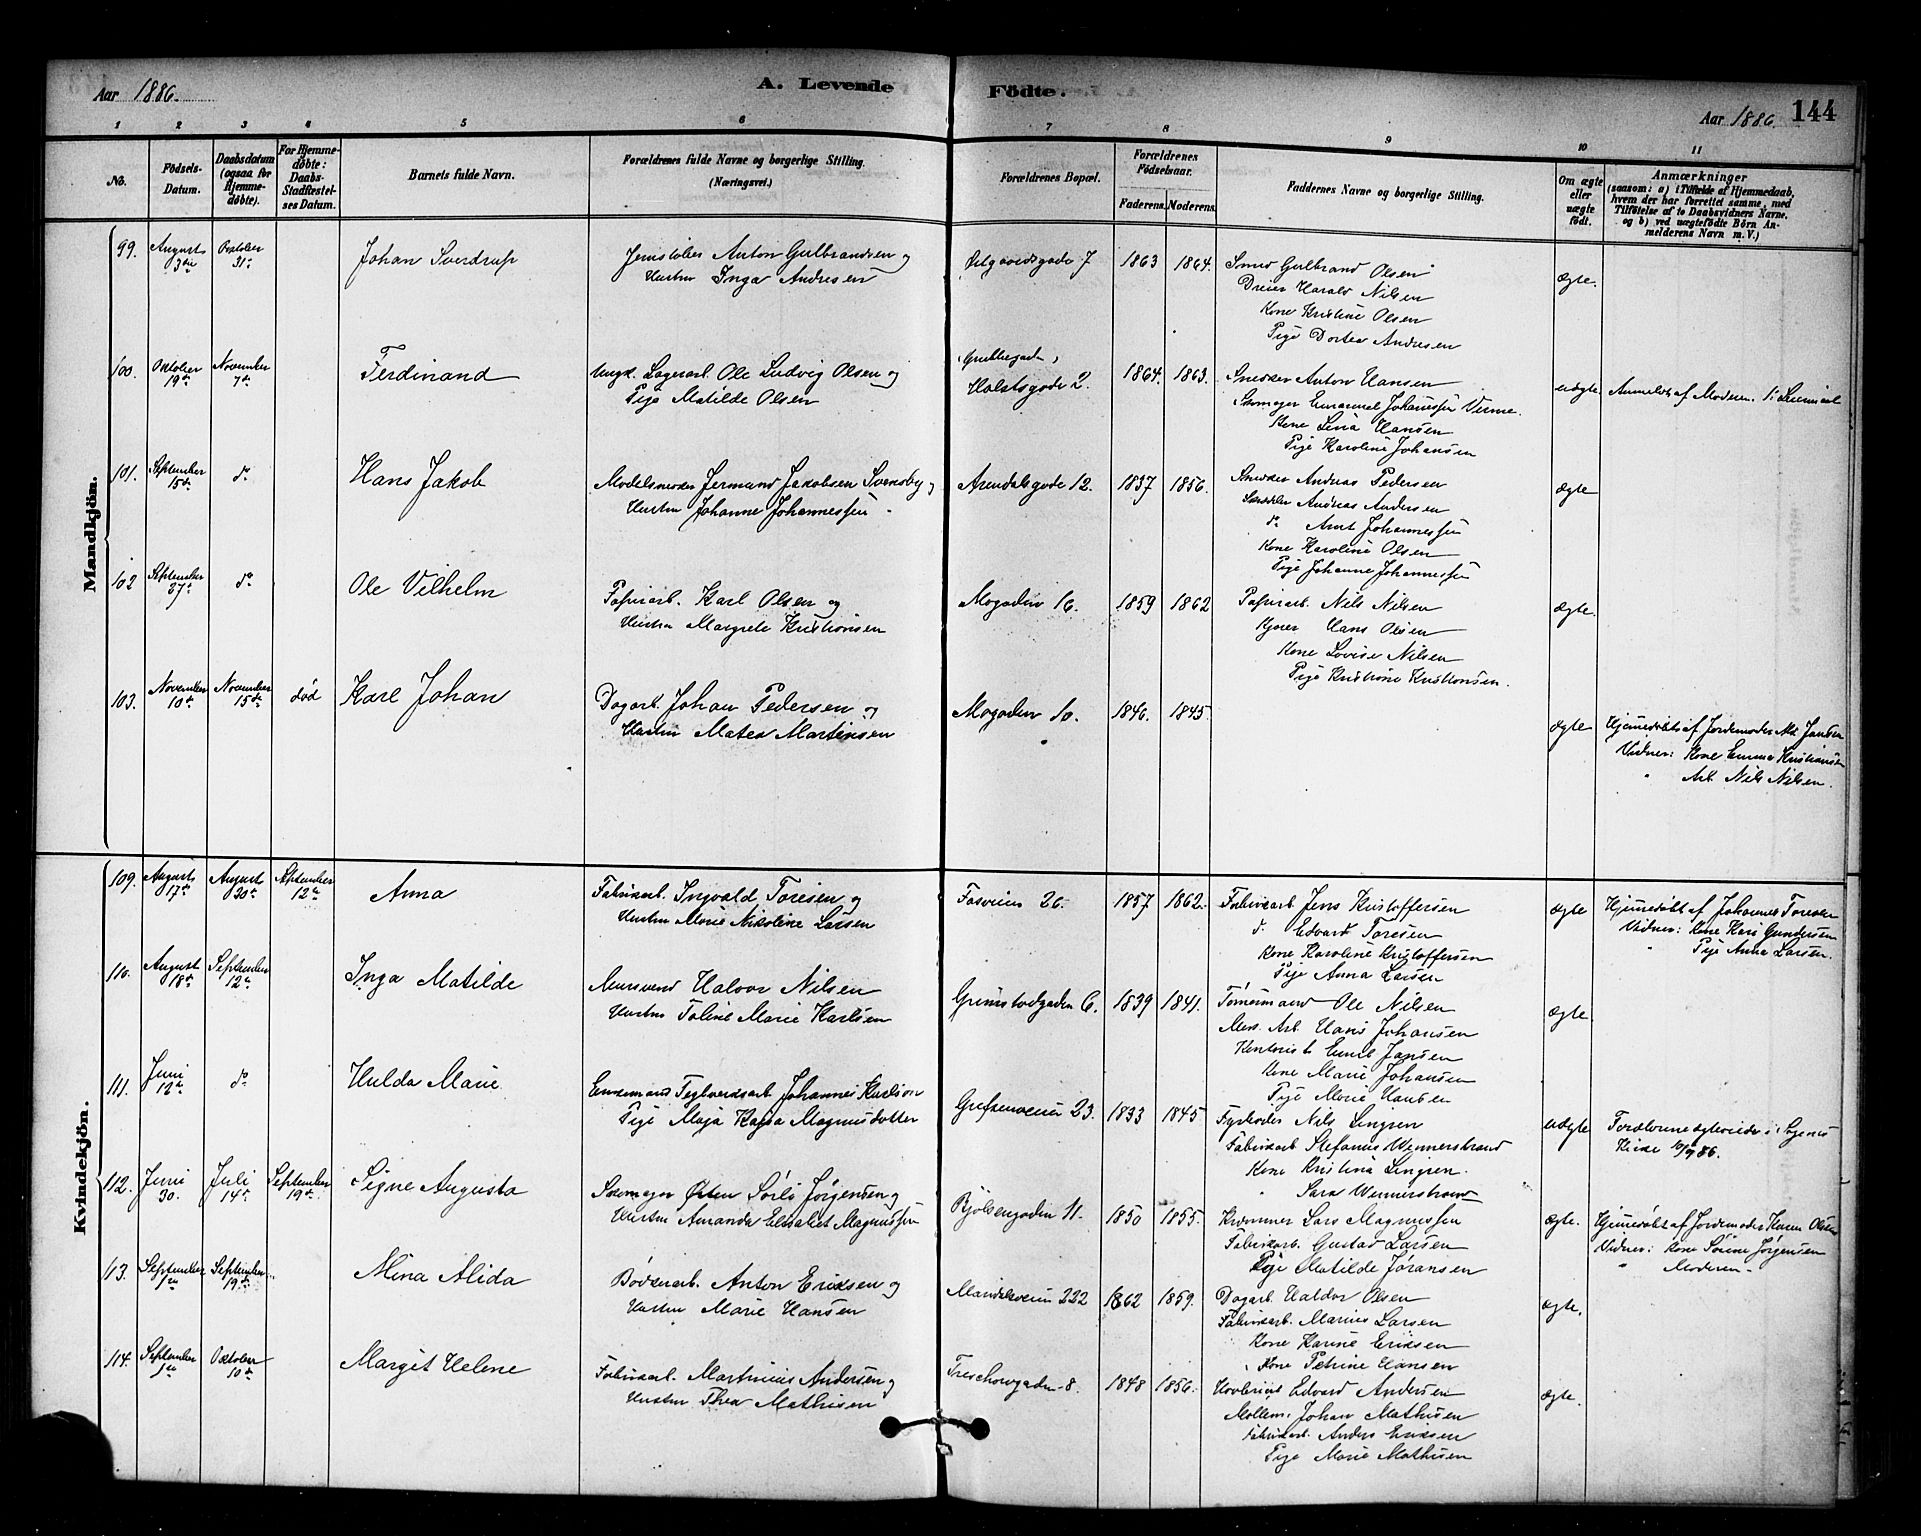 Aar 1886.
A. Levende
Födte.
Aar 1886.
144
1 2 3 4 5 6 7 8 9 10 11
No.
Födsels-
Datum.
Daabsdatum
(ogsaa for
Hjemme-
döbte).
For Hjemme-
døbte:
Daabs-
Stadfæstel-
ses Datum.
Barnets fulde Navn.
Forældrenes fulde Navne og borgerlige Stilling.
(Næringsvei.)
Forældrenes Bopæl.
Forældrenes
Födselsaar.
Faderens.
Moderens.
Faddernes Navne og borgerlige Stilling.
Om ægte
eller
uægte
født.
Anmærkninger
(saasom: a) i Tilfælde af Hjemmedaab,
hvem der har forrettet samme, med
Tilföielse af to Daabsvidners Navne,
og b) ved uægtefödte Börn An-
melderens Navn m. V.)
Mandkjön.
99.
August
3die
Oktober
31te
Johan Sverdrup
Jernstøber Anton Gulbrandsen og
Hustru Inga Andresen
7
1863
1864.
Smed Gulbrand Olsen
Dreier Harald Nilsen
Kone Kristine Olsen
Pige Dortea Andresen
ægte.
100.
Oktober
19de
November
7de
Ferdinand
Ungk. Lagerarb. Ole Ludvig Olsen og
Pige Matilde Olsen
Holstsgade 2.
1864.
1863.
Snedker Anton Hansen
Skomager Emanuel Johannessen
Kone Lina Hansen
Pige Karoline Johansen
uægte.
Anmeldt af Moderen.
101.
September
15de
do
Hans Jakob
Modelsnedker Jermund Jakobsen Svensby og
Hustru Johanne Johannessen
Arendalsgade 12.
1837
1856.
Snedker Andreas Pedersen
Skrædder Andreas Andersen
do Arnt Johannessen
Kone Karoline Olsen
Pige Johanne Johannessen
ægte
102
September
27de
do
Ole Vilhelm
Papirarb. Karl Olsen og
Hustru Margrete Kristiansen
Mogaden 16.
1859
1862
Papirarb. Nils Nilsen
Kjører Hans Olsen
Kone Lovise Nilsen
Pige Kristine Kristiansen.
ægte.
103.
November
10de
November
15de
død
Karl Johan
Dagarb. Johan Pedersen og
Hustru Matea Martinsen
Mogaden 10.
1846.
1845.
ægte
Hjemmedøbt af Jordemoder Jansen
Vidner: Kone Emma Kristiansen
" Arb. Nils Nilsen.
Kvindekjön.
109.
August
17de
August
20de
September
12te
Anna
Fabrikarb. Ingvald Toresen og
Hustru Marie Nikoline Larsen
Fosveien 26.
1857
1862.
Fabrikarb. Jens Kristoffersen
d. Edvard Toresen
Kone Karoline Kristoffersen
Pige Anna Larsen
ægte
Hjemmedøbt af Johannes Toresen
Vidner: Kone Kari Gundersen
" Pige Anna Larsen.
110.
August
18de
September
12te
Inga Matilde
Murersvend Halvor Nilsen
Hustru Toline Marie Karlsen
Grimstadgaden 6.
1839
1841.
Tømmermand Ole Nilsen
Mek. Arb. Hans Johansen
Kontorist Emil Jansen
Kone Marie Johansen
Pige Marie Hansen
ægte.
111.
Juni
12te
do
Hulda Marie
Enkemand Teglværksarb. Johannes Karlson
Pige Maja Kajsa Magnusdotter
Grefsenveien 23.
1833
1845
Fyrbøder Nils Lingren
Fabrikarb. Stefanus Wennerstrand
Kone Kristina Lingren.
" Sara Wennerstrand
uægte
Forældrene ægteviede i Sagenes
Kirke 10/9 86.
112.
Juni
30.
Juli
14de
September
19de
Signe Augusta
Skomager Østen Sørli Jørgensen og
Hustru Amanda Elisabet Magnussen
Bjølsengaden 11.
1850
1855.
Kræmmer Lars Magnussen
Fabrikarb. Gustav Larsen
Pige Matilde Jøransen
ægte.
Hjemmedøbt af Jordemoder Karen Olsen
Vidner: Kone Sørine Jørgensen
" Moderen.
113.
September
1ste
September
19de
Mina Alida
Bødkerarb. Anton Eriksen og
Hustru Marie Hansen
Maridalsveien 222
1862
1859.
Dagarb. Haldor Olsen
Fabrikarb. Marius Larsen
Kone Karine Eriksen
Kone Petrine Hansen
ægte.
114.
September
1ste
Oktober
10de
Margit Helene
Fabrikarb. Martinius Andersen og
Hustru Thea Mathisen
Treschowgaden 8.
1848
1856.
Edvard Andersen
Møllem. Johan Mathisen
Fabrikarb. Anders Eriksen
Pige Marie Mathisen
ægte.